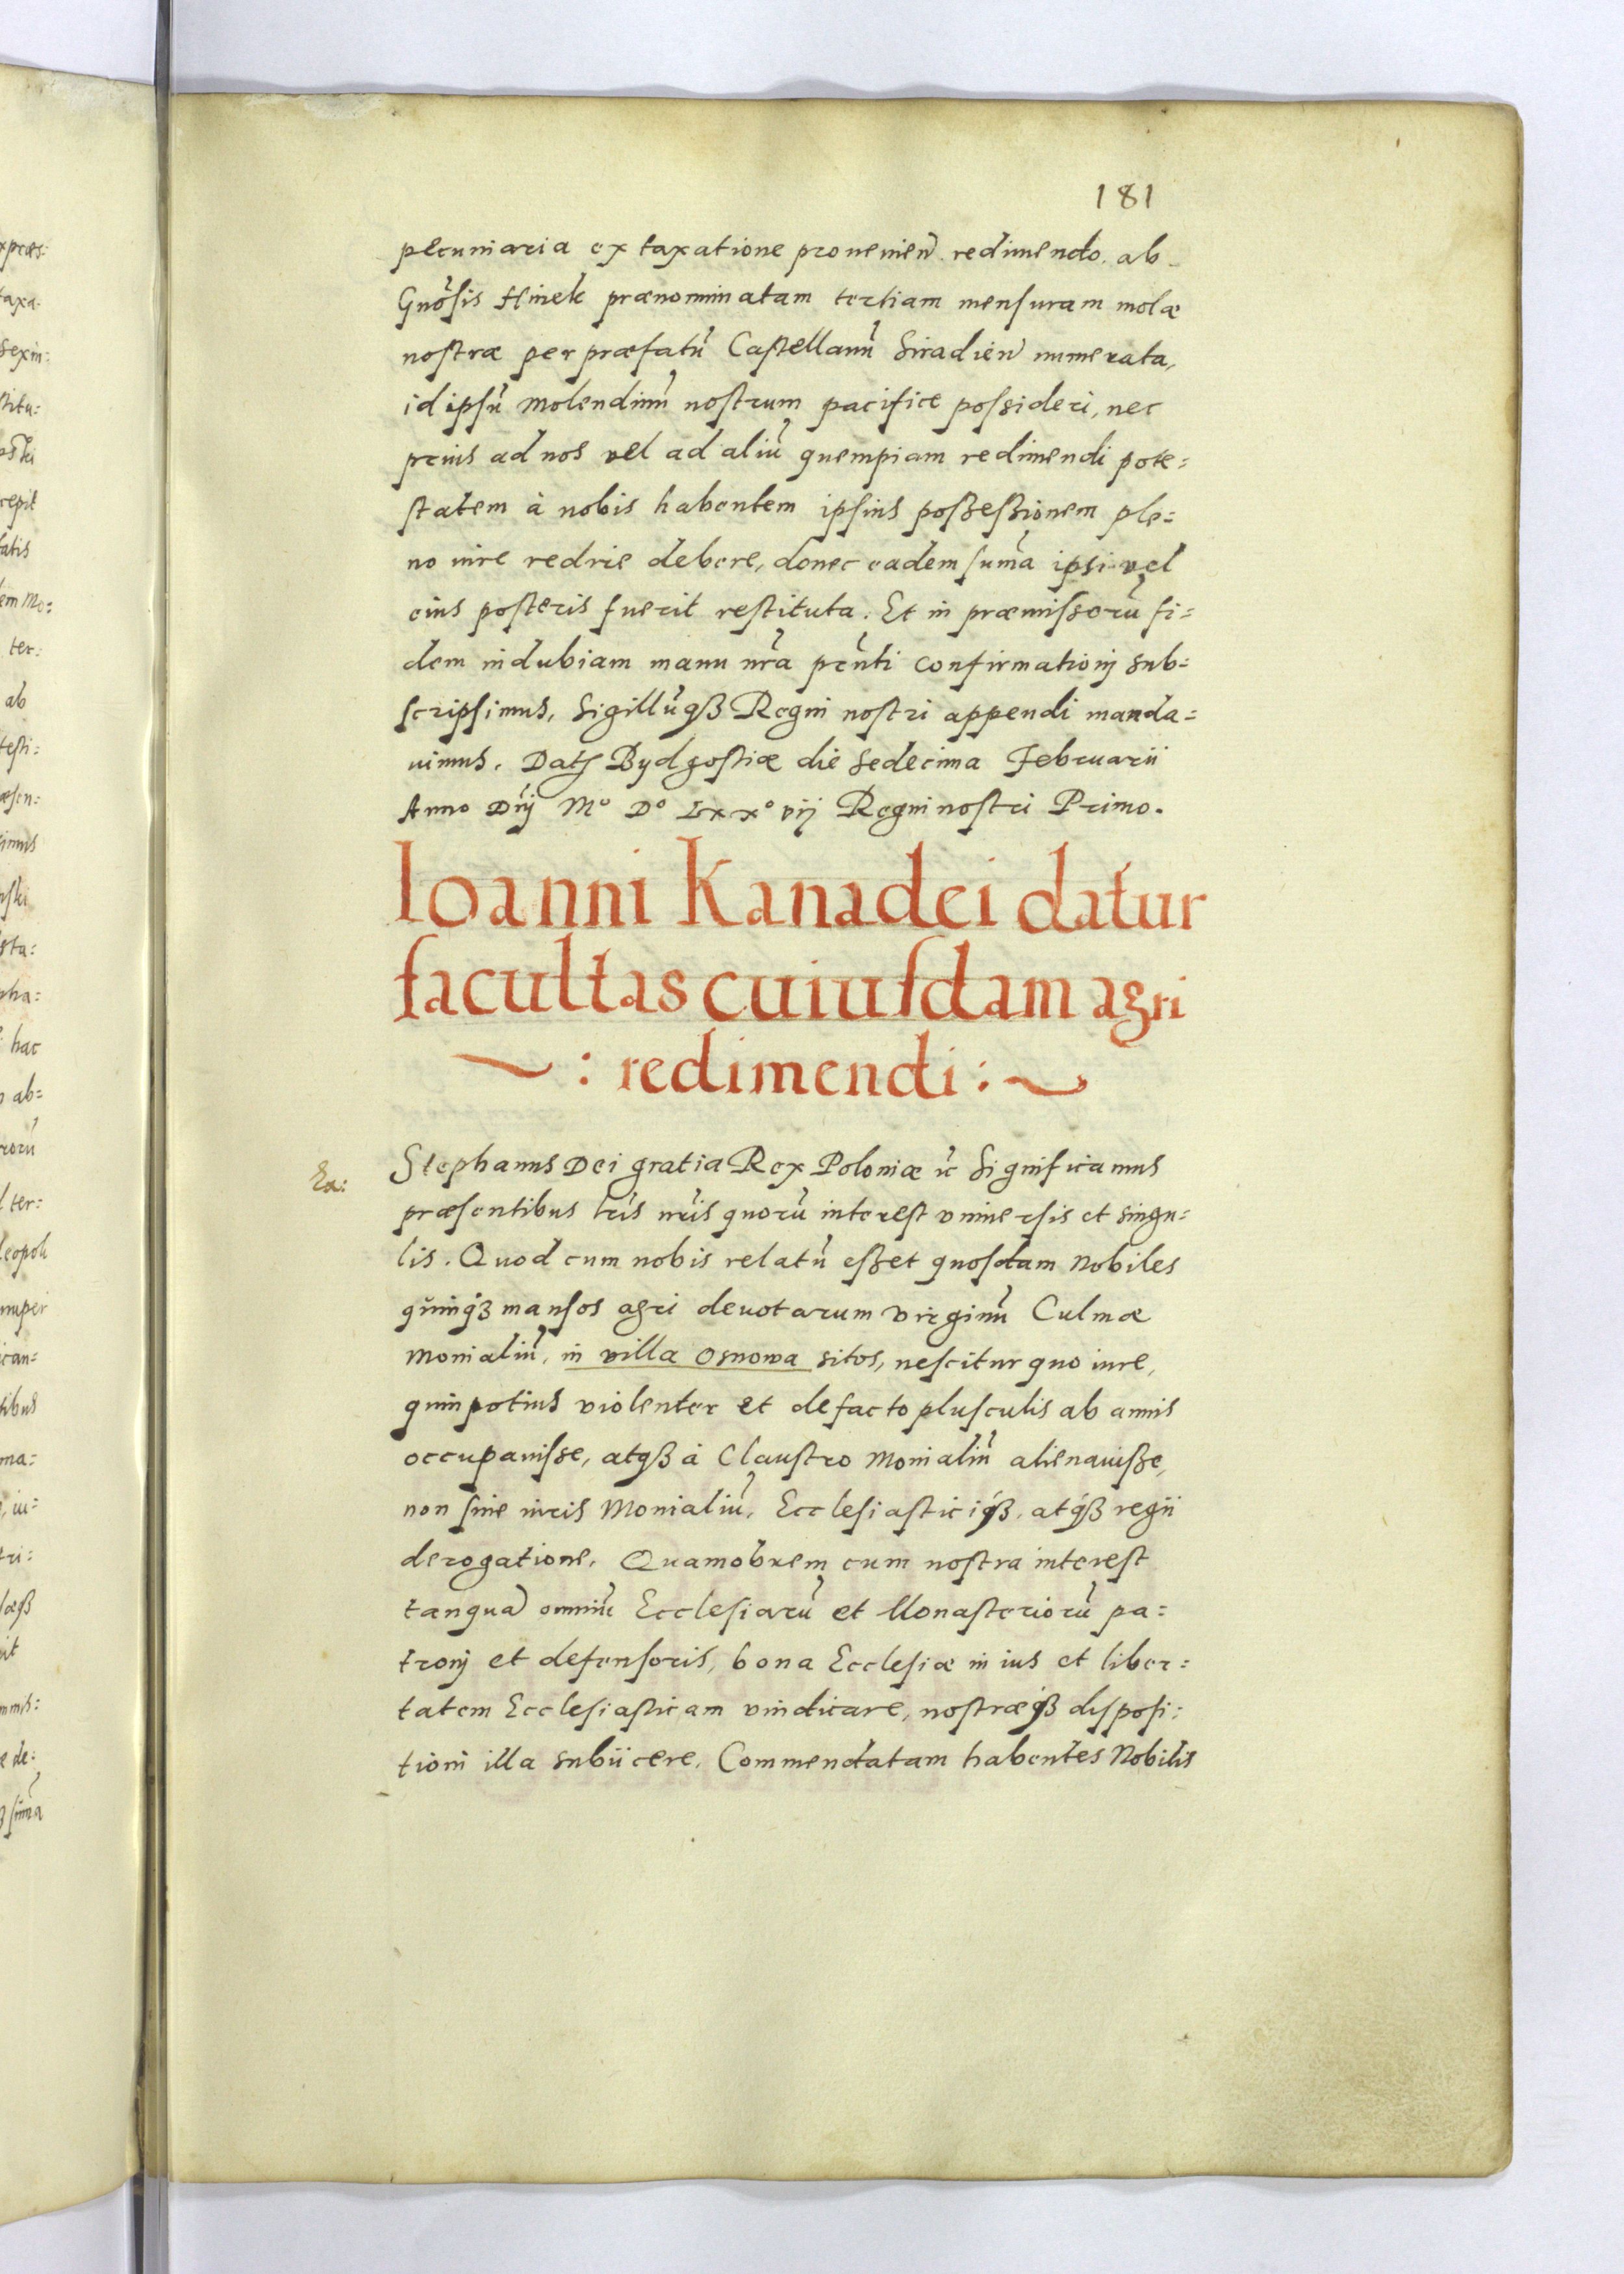 181
pecuniaria ex taxatione prouenien̄ redimendo ab
Gnōsis Hinek prænominatam tertiam mensuram molæ
nostræ per præfatū Castellanū Siradien̄ numerata,
id ipsū molendinū nostrum pacifice possideri, nec
prius ad nos vel ad aliū quempiam redimendi pote=
statem à nobis habentem ipsius possessionem ple=
no iure redrie debere, donec eadem sum̄a ipsi vel
eius posteris fuerit restituta. Et in præmissorū fi=
dem indubiam manu nr̄a pn̄ti confirmationj sub=
scripsimus, Sigillūqȝ Regni nostri appendi manda=
uimus. Datȝ Bydgostiæ die sedecima Februarii
Anno Dn̄j Mº Dº Lxxº vij Regni nostri Primo.
Ioanni Kanadei datur
facultas cuiusdam agri
: redimendi :
Ea:
Stephanus Dei gratia Rex Poloniæ ꝛc̄ Significamus
præsentibus lr̄is nr̄is quorū interest vniuersis et singu=
lis. Quod cum nobis relatū esset quosdam Nobiles
quinqȝ mansos agri deuotarum virginū Culmæ
Monialiū, in villa Osnowa sitos, nescitur quo iure,
quinpotius violenter et defacto plusculis ab annis
occupauisse, atqȝ à Claustro Monialiū alienauisse,
non sine iuris Monialiū, Ecclesiasticiqȝ, atqȝ regii
derogatione. Quamobrem cum nostra interest
tanqua͂ omniū Ecclesiarū et Monasteriorū pa=
tronj et defensoris, bona Ecclesiæ in ius et liber=
tatem Ecclesiasticam vindicare, nostræqȝ disposi=
tioni illa subiicere, Commendatam habentes Nobilis